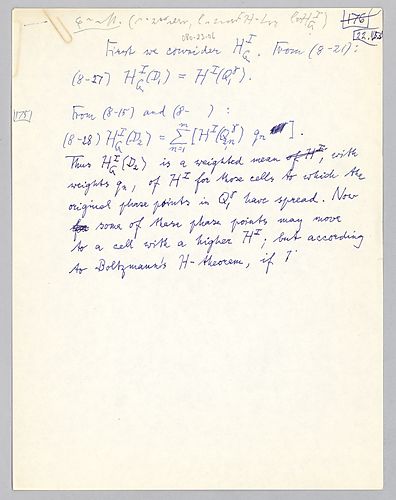 176
22.
080-23-16
First we consider H_G^I. From (8-21):
(8-27) H_G^I(D_1) = H^I(Q_1^γ).
175
From (8-15) and (8-   ):
(8-28) H_G^I(D_2) = \sum_{n=1}^{m} [H^I(Q_n^γ) g_n].
Thus H_G^I(D_2) is a weighted mean of H^I, with
weights g_n, of H^I for those cells to which the
original phase points in Q_1^γ have spread. Now
some of these phase points may move
to a cell with a higher H^I; but according
to Boltzmann's H-theorem, if T